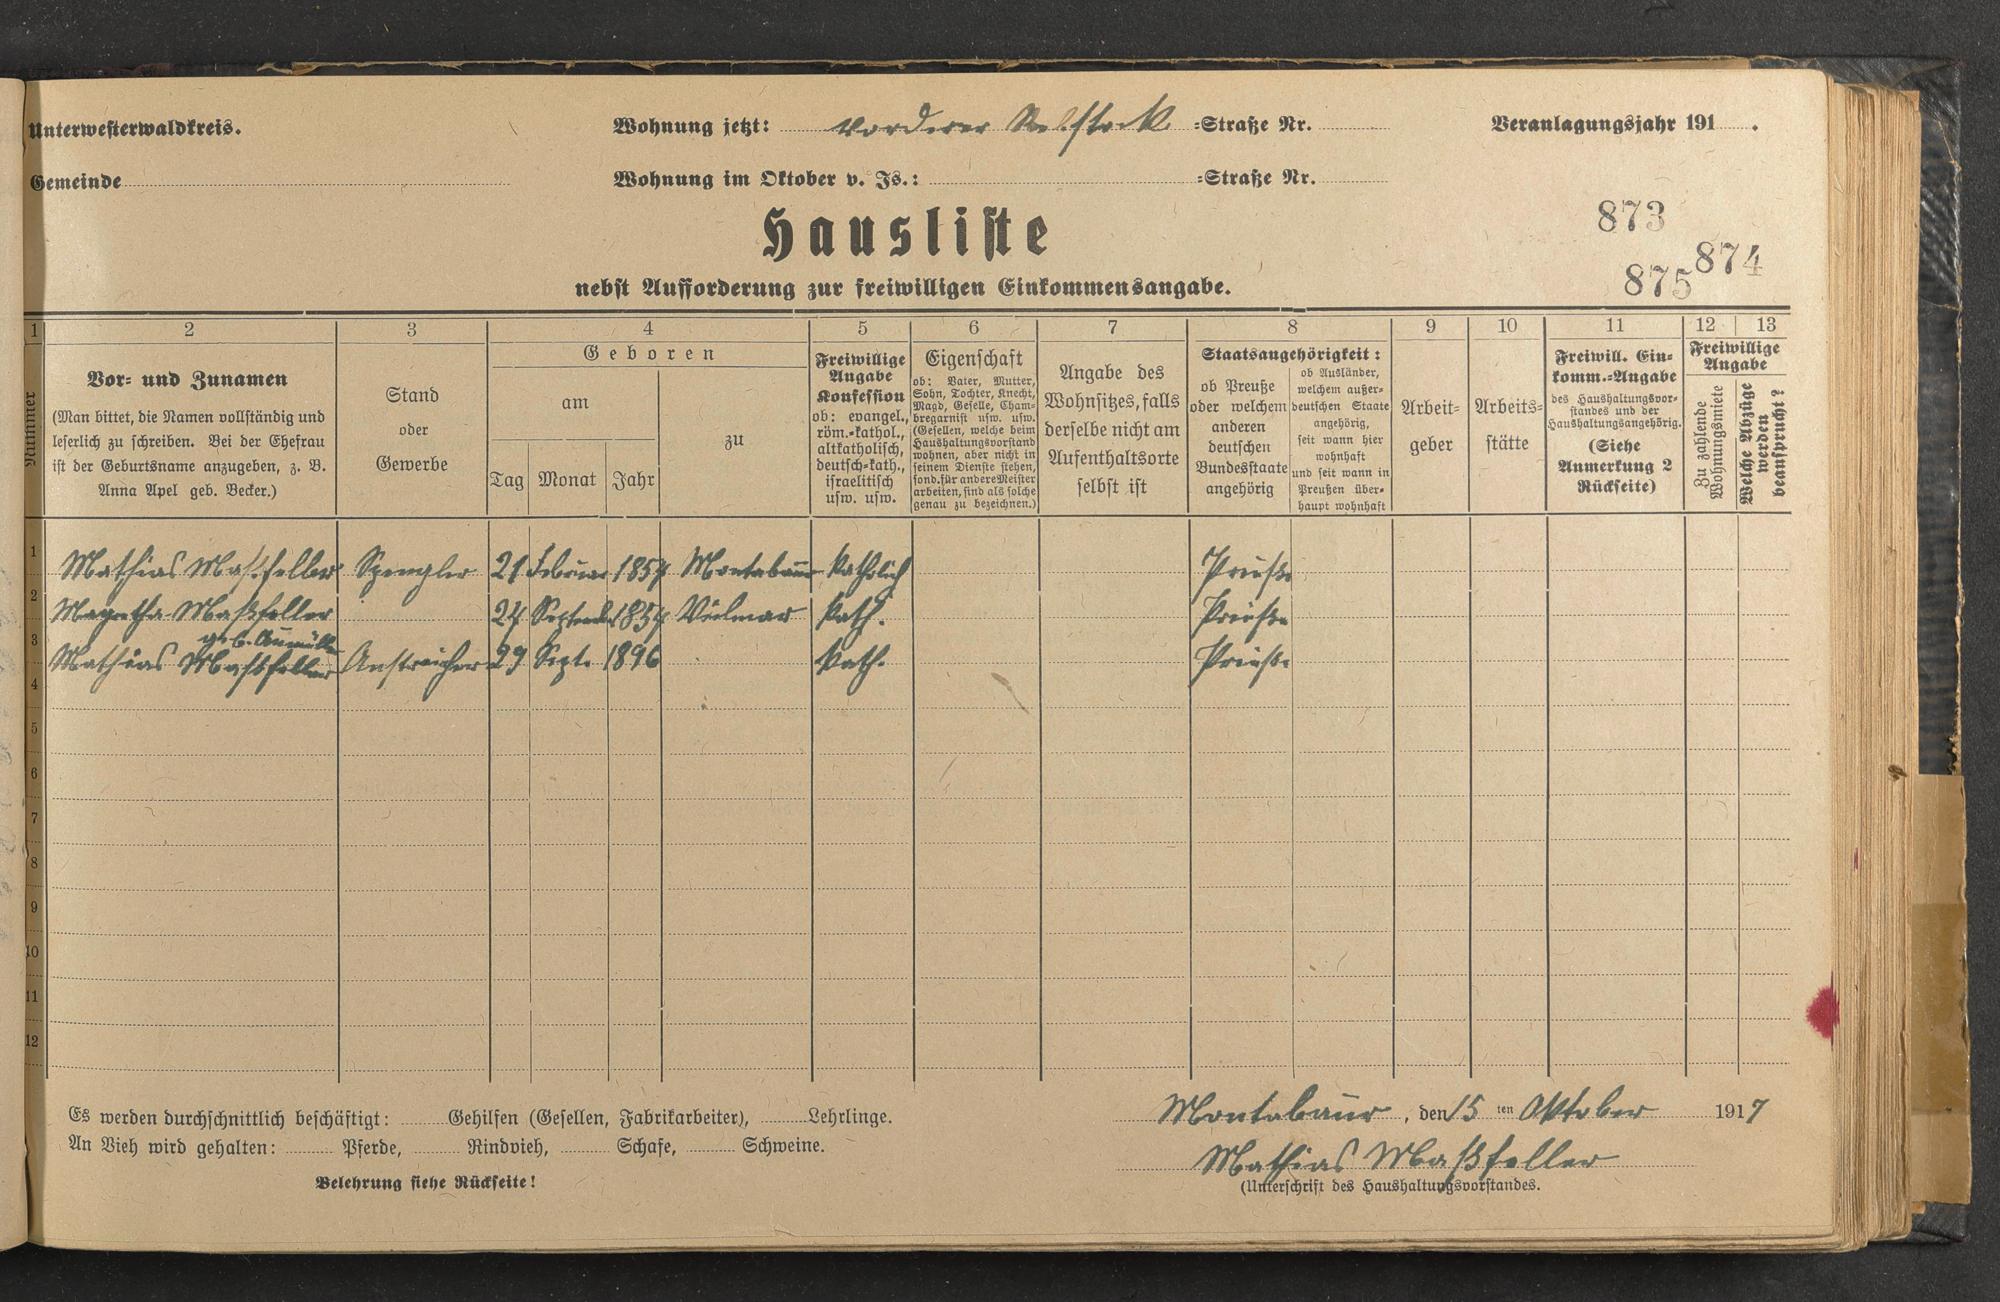 Unterwesterwaldkreis.
Wohnung jetzt: vorderer Rebstock =Straße Nr.
Veranlagungsjahr 191 .
Gemeinde
Wohnung im Oktober v. Js.: =Straße Nr.
Hausliste
873
874
875
nebst Aufforderung zur freiwilligen Einkommensangabe.
1 2 3 4 5 6 7 8 9 10 11 12 13
Nummer
Vor- und Zunamen
(Man bittet, die Namen vollständig und
leserlich zu schreiben. Bei der Ehefrau
ist der Geburtsname anzugeben, z. B.
Anna Apel geb. Becker.)
Stand
oder
Gewerbe
Geboren
am
Tag Monat Jahr
zu
Freiwillige
Angabe
Konfession
ob: evangel.,
röm.-kathol.,
altkatholisch,
deutsch-kath.,
israelitisch
usw. usw.
Eigenschaft
ob: Vater, Mutter,
Sohn, Tochter, Knecht,
Magd, Geselle, Cham-
bregarnist usw. usw.
(Gesellen, welche beim
Haushaltungsvorstand
wohnen, aber nicht in
seinem Dienste stehen,
sond. für andere Meister
arbeiten, sind als solche
genau zu bezeichnen.)
Angabe des
Wohnsitzes, falls
derselbe nicht am
Aufenthaltsorte
selbst ist
Staatsangehörigkeit:
ob Preuße
oder welchem
anderen
deutschen
Bundesstaate
angehörig
ob Ausländer,
welchem außer-
deutschen Staate
angehörig,
seit wann hier
wohnhaft
und seit wann in
Preußen über-
haupt wohnhaft
Arbeit-
geber
Arbeits-
stätte
Freiwill. Ein-
komm.-Angabe
des Haushaltungsvor-
standes und der
Haushaltungsangehörig.
(Siehe
Anmerkung 2
Rückseite)
Freiwillige
Angabe
Zu zahlende
Wohnungsmiete
Welche Abzüge
werden
beansprucht?
1 Mathias Maßfeller Spengler 21 Februar 1857 Montabaur Katholich Preuße
2 Magretha Maßfeller 24 September 1857 Vilmar Kath. Preuße
geb. Aumüller
3 Mathias Maßfeller Anstreicher 29 Sept. 1896 Kath. Preuße
4
5
6
7
8
9
10
11
12
Es werden durchschnittlich beschäftigt: Gehilfen (Gesellen, Fabrikarbeiter), Lehrlinge.
An Vieh wird gehalten: Pferde, Rindvieh, Schafe, Schweine.
Belehrung siehe Rückseite!
Montabaur, den 15 ten Oktober 1917
Mathias Maßfeller
(Unterschrift des Haushaltungsvorstandes.